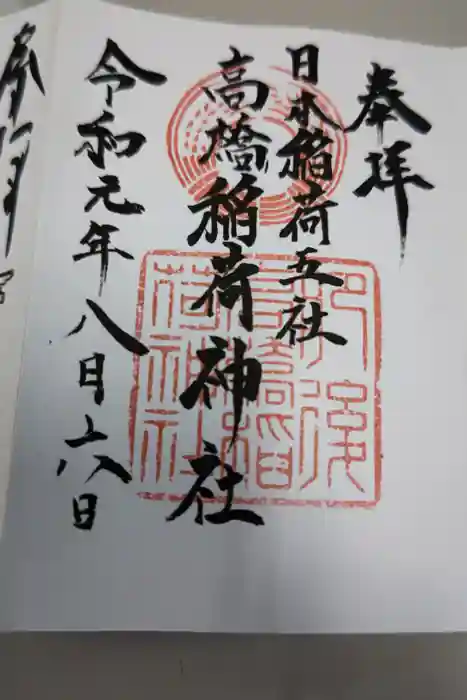 奉拝
日本稲荷五社
高橋稲荷神社
令和元年八月六日
肥後
高橋稲
荷神社